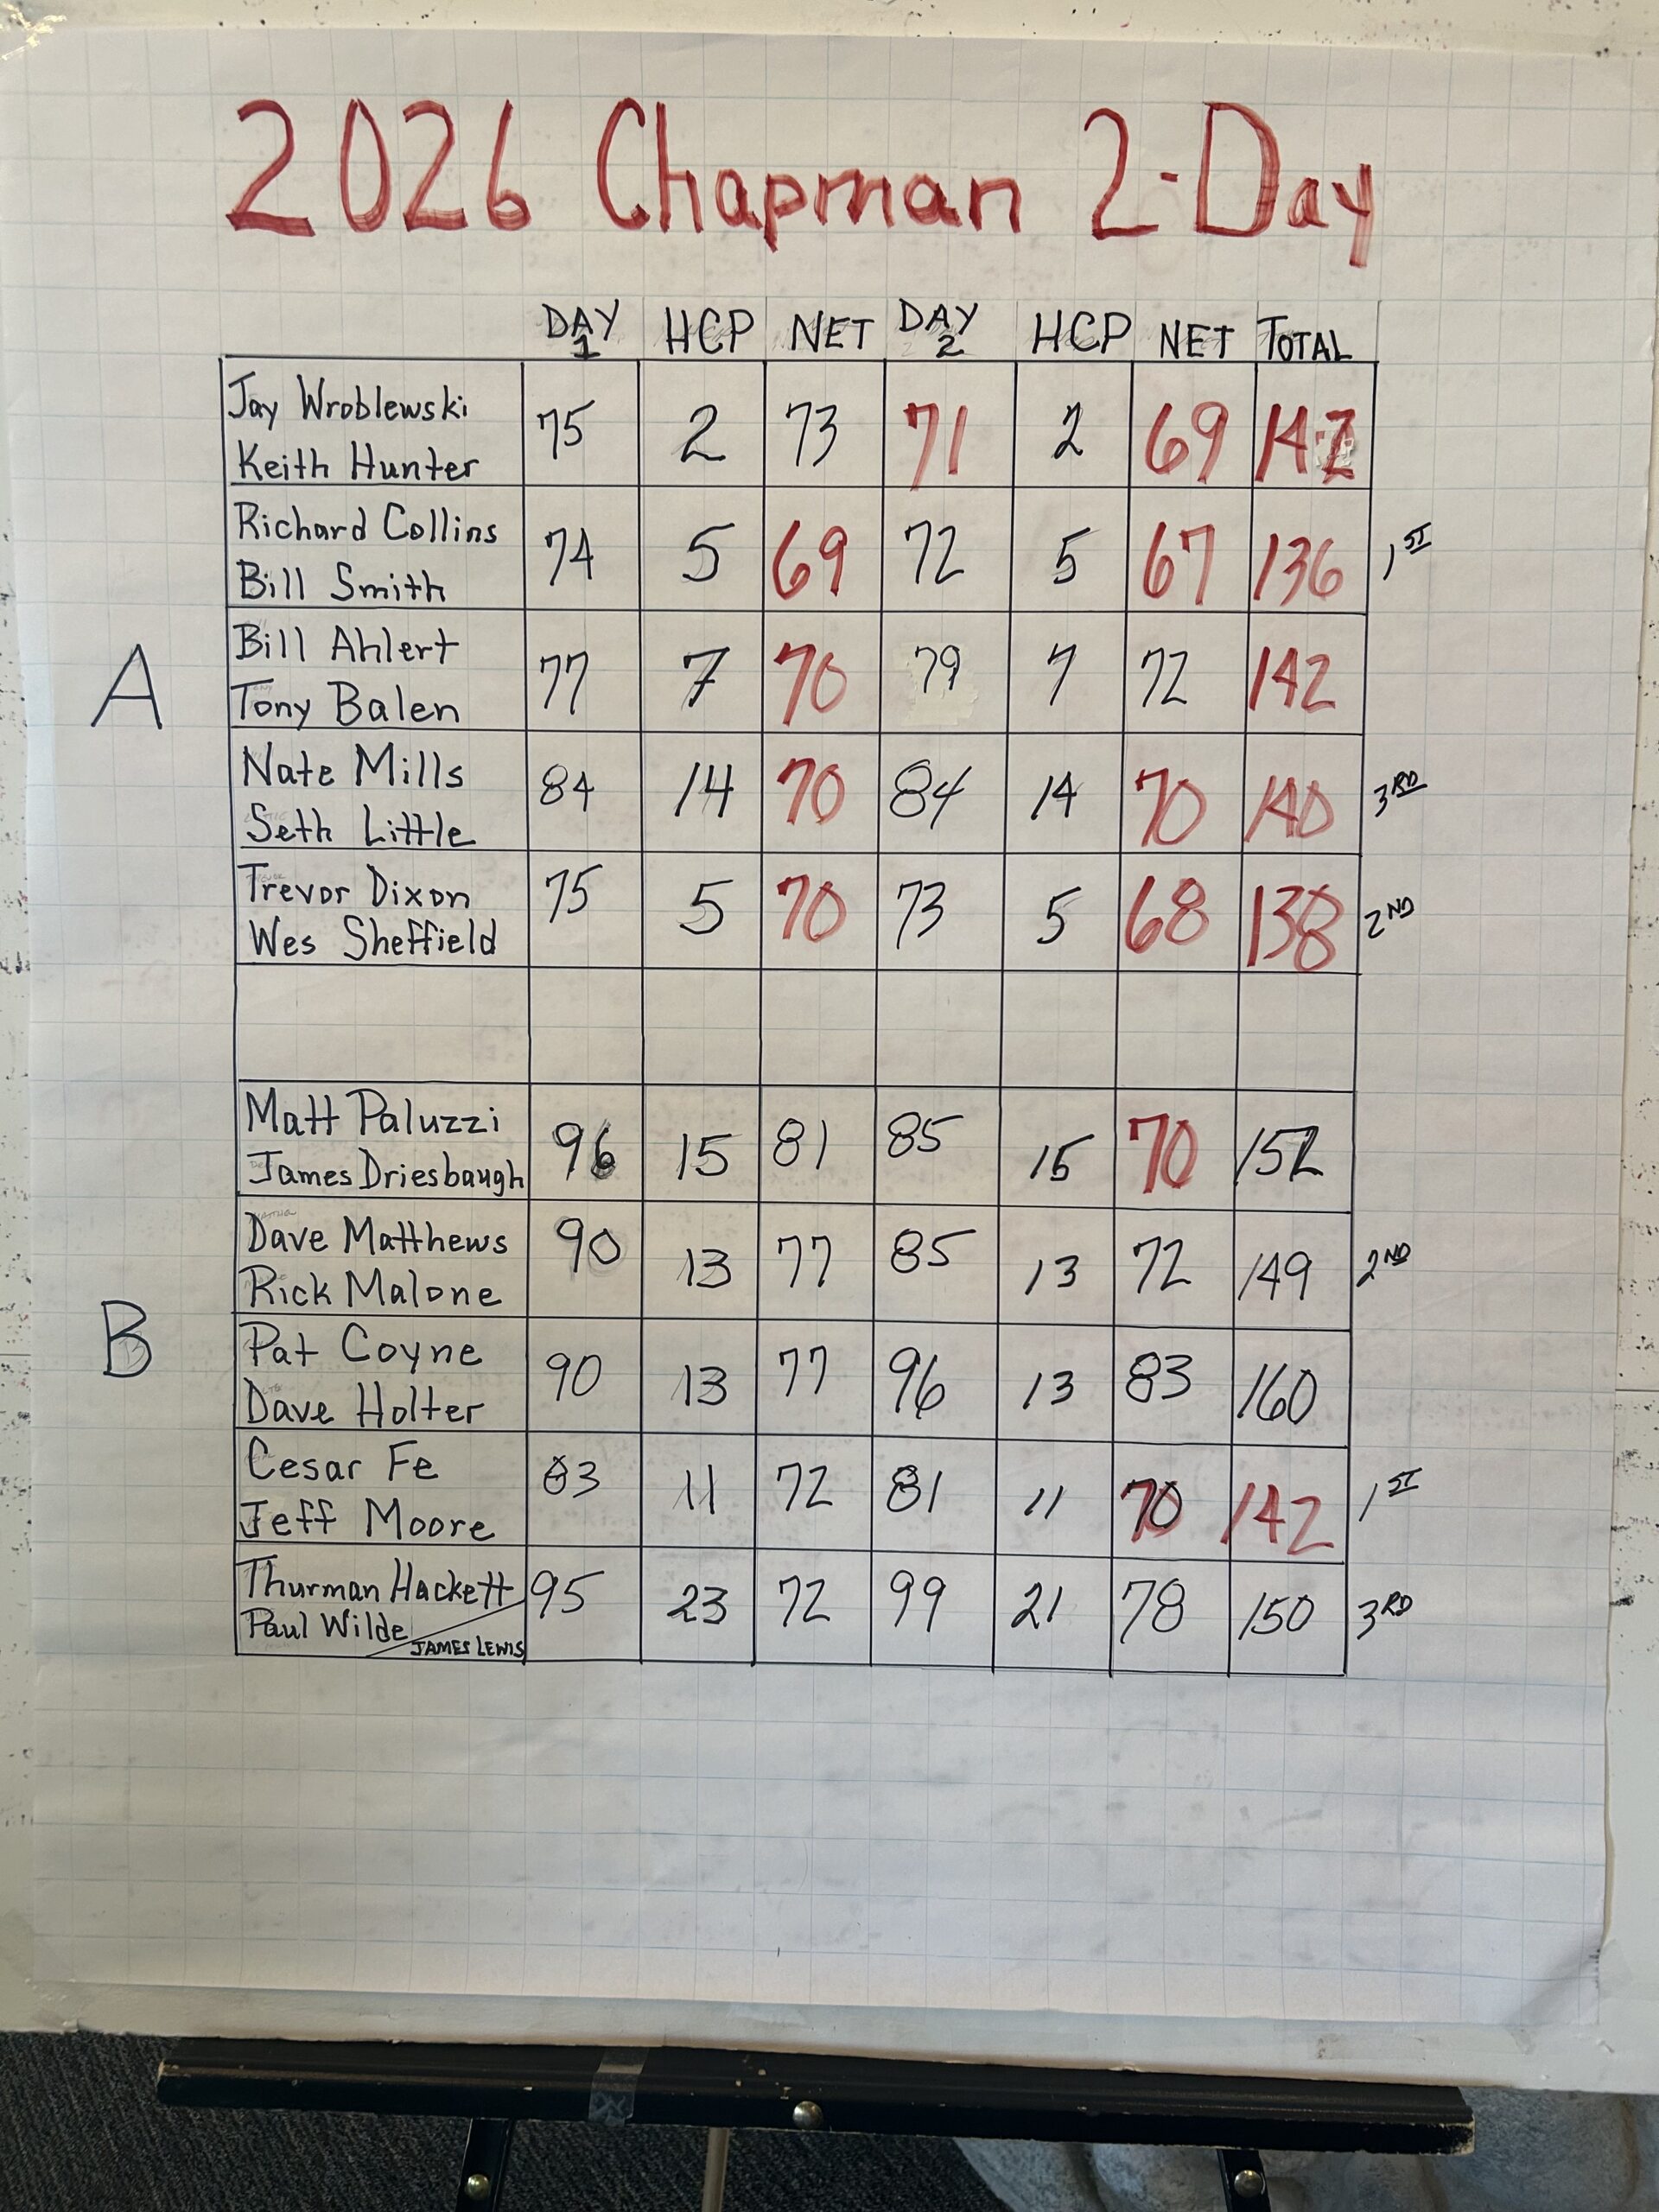 2026 Chapman 2-Day
DAY 1 HCP NET DAY 2 HCP NET TOTAL
A
Jay Wroblewski
Keith Hunter
75 2 73 71 2 69 142
Richard Collins
Bill Smith
74 5 69 72 5 67 136 1ST
Bill Ahlert
Tony Balen
77 7 70 79 7 72 142
Nate Mills
Seth Little
84 14 70 84 14 70 140 3RD
Trevor Dixon
Wes Sheffield
75 5 70 73 5 68 138 2ND
B
Matt Paluzzi
James Driesbaugh
96 15 81 85 15 70 152
Dave Matthews
Rick Malone
90 13 77 85 13 72 149 2ND
Pat Coyne
Dave Holter
90 13 77 96 13 83 160
Cesar Fe
Jeff Moore
83 11 72 81 11 70 142 1ST
Thurman Hackett
Paul Wilde / JAMES LEWIS
95 23 72 99 21 78 150 3RD